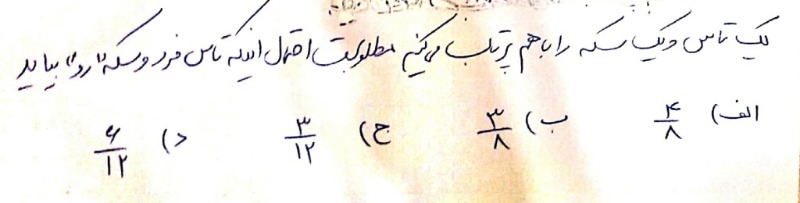 یک تاس و یک سکه را با هم پرتاب می‌کنیم مطلوبست احتمال اینکه تاس فرد و سکه "رو" بیاید
الف) ۴/۸ ب) ۳/۸ ج) ۳/۱۲ د) ۶/۱۲